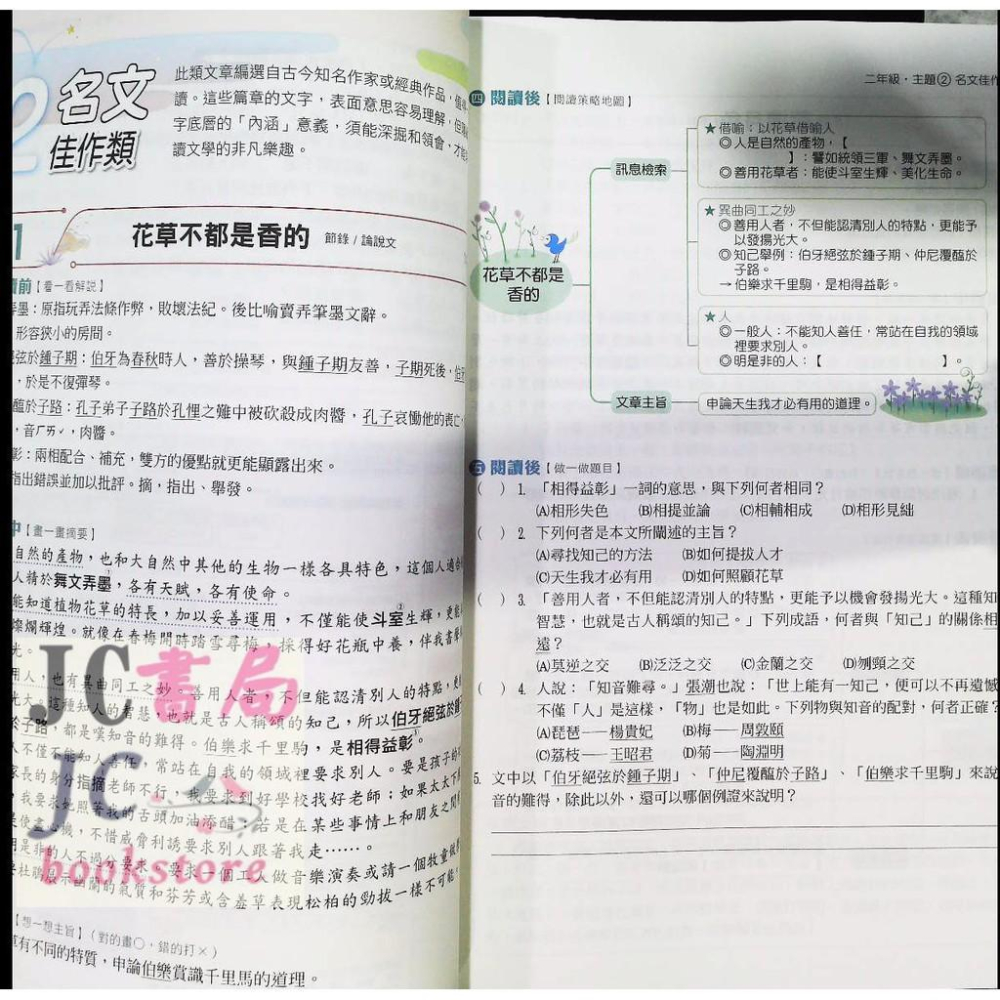 2 名文
佳作類
此類文章編選自古今知名作家或經典作品，值得
讀。這些篇章的文字，表面意思容易理解，但
字底層的「內涵」意義，須能深掘和領會，才能
讀文學的非凡樂趣。
1 花草不都是香的 節錄／論說文
讀前【看一看解說】
弄墨：原指玩弄法條作弊，敗壞法紀。後比喻賣弄筆墨文辭。
形容狹小的房間。
絕弦於鍾子期：伯牙為春秋時人，善於操琴，與鍾子期友善，子期死後，伯牙
，於是不復彈琴。
醢於子路：孔子弟子子路於孔悝之難中被砍殺成肉醬，孔子哀慟他的喪亡，
，音ㄏㄞˇ，肉醬。
彰：兩相配合、補充，雙方的優點就更能顯露出來。
指出錯誤並加以批評。摘，指出、舉發。
中【畫一畫摘要】
自然的產物，也和大自然中其他的生物一樣各具特色，這個人適合
人精於舞文弄墨，各有天賦，各有使命。
能知道植物花草的特長，加以妥善運用，不僅能使斗室生輝，更能
燦爛輝煌。就像在春梅開時踏雪尋梅，採得好花瓶中養，伴我書聲
光。
用人，也有異曲同工之妙。善用人者，不但能認清別人的特點，更
光大。這種知人的智慧，也就是古人稱頌的知己，所以伯牙絕弦於鍾
於子路，都是嘆知音的難得。伯樂求千里駒，是相得益彰。
人不僅不能知人善任，常站在自我的領域裡要求別人。要是孩子的
家長的身分指摘老師不行，我要求到好學校找好老師；如果太太不
，我要求她照著我的舌頭加油添醋；若是在某些事情上和朋友之間
是使盡心機，不惜威脅利誘要求別人跟著我走……。
明是非的人不過分要求，要求一個工人做音樂演奏或請一個牧童做
要杜鵑展示幽蘭的氣質和芬芳或含羞草表現松柏的勁拔一樣不可能。
【想一想主旨】（對的畫○，錯的打×）
草有不同的特質，申論伯樂賞識千里馬的道理。
JC書局
JC
bookstore
二年級・主題② 名文佳作
四 閱讀後【閱讀策略地圖】
花草不都是
香的
訊息檢索
★借喻：以花草借喻人
◎人是自然的產物，【
】：譬如統領三軍、舞文弄墨。
◎善用花草者：能使斗室生輝、美化生命。
★異曲同工之妙
◎善用人者，不但能認清別人的特點，更能予
以發揚光大。
◎知己舉例：伯牙絕弦於鍾子期、仲尼覆醢於
子路。
→伯樂求千里駒，是相得益彰。
★人
◎一般人：不能知人善任，常站在自我的領域
裡要求別人。
◎明是非的人：【 】。
文章主旨
申論天生我才必有用的道理。
五 閱讀後【做一做題目】
（ ）1. 「相得益彰」一詞的意思，與下列何者相同？
(A)相形失色 (B)相提並論 (C)相輔相成 (D)相形見絀
（ ）2. 下列何者是本文所闡述的主旨？
(A)尋找知己的方法 (B)如何提拔人才
(C)天生我才必有用 (D)如何照顧花草
（ ）3. 「善用人者，不但能認清別人的特點，更能予以機會發揚光大。這種知
智慧，也就是古人稱頌的知己。」下列成語，何者與「知己」的關係相
遠？
(A)莫逆之交 (B)泛泛之交 (C)金蘭之交 (D)刎頸之交
（ ）4. 人說：「知音難尋。」張潮也說：「世上能有一知己，便可以不再遺憾
不僅「人」是這樣，「物」也是如此。下列物與知音的配對，何者正確？
(A)琵琶──楊貴妃 (B)梅──周敦頤
(C)荔枝──王昭君 (D)菊──陶淵明
5. 文中以「伯牙絕弦於鍾子期」、「仲尼覆醢於子路」、「伯樂求千里駒」來說
音的難得，除此以外，還可以哪個例證來說明？